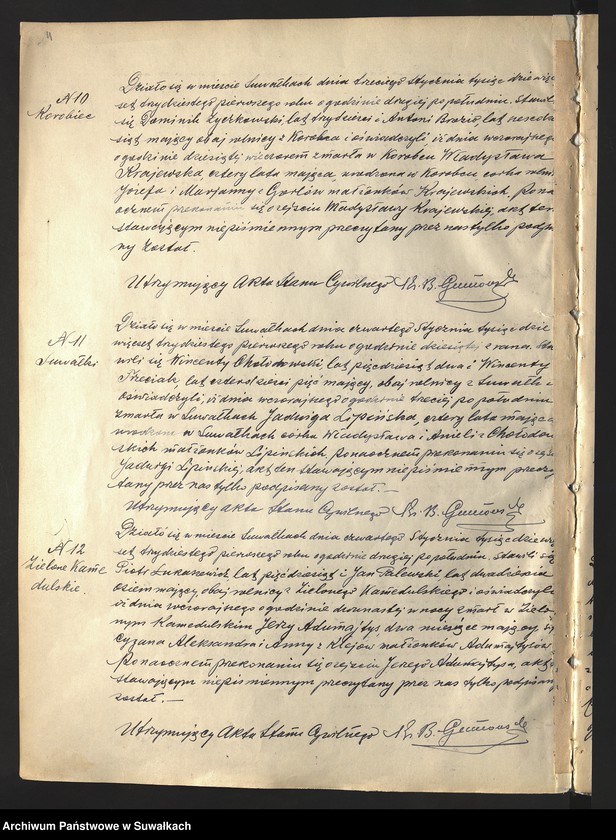 N 10
Korobiec
Działo się w mieście Suwałkach dnia trzeciego Stycznia tysiąc dziewięć
set trzydziestego pierwszego roku o godzinie drugiej po południu. Stawili
się Dominik Życzkowski, lat trzydzieści i Antoni lat
siąt mający obaj rolnicy z Korobca i oświadczyli iż dnia wczorajszego
o godzinie dziesiątej wieczorem zmarła w Korobcu Władysława
Krajewska, cztery lata mająca urodzona w Korobcu córka
Józefa i Marjanny z Gorlów małżonków Krajewskich. Pona
ocznem przekonaniu się o zejściu Władysławy Krajewskiej, akt ten
stawającym niepiśmiennym przeczytany przez nas tylko podpisa
ny został.
Utrzymujący Akta Stanu Cywilnego Ks. B.
N 11
Suwałki
Działo się w mieście Suwałkach dnia czwartego Stycznia tysiąc dzie
więćset trzydziestego pierwszego roku o godzinie dziesiątej z rana. Sta
wili się Wincenty Chołodowski, lat pięćdziesiąt dwa i Wincenty
lat czterdzieści pięć mający, obaj rolnicy z Suwałk i
oświadczyli, iż dnia wczorajszego o godzinie trzeciej po południu
zmarła w Suwałkach Jadwiga Lipińska, cztery lata mająca
urodzona w Suwałkach córka Władysława i Anieli z Chołodow
skich małżonków Lipińskich. Ponaocznem przekonaniu się o zejściu
Jadwigi Lipińskiej, akt ten stawającym niepiśmiennym przeczy
tany przez nas tylko podpisany został. —
Utrzymujący akta Stanu Cywilnego Ks. B.
N 12
Zielone Kame
dulskie.
Działo się w mieście Suwałkach dnia czwartego Stycznia tysiąc dziewięć
set trzydziestego pierwszego roku o godzinie drugiej po południu. Stawili się
Piotr Łukasiewicz lat pięćdziesiąt i Jan lat dwadzieścia
osiem mający, obaj rolnicy z Zielonego Kamedulskiego i oświadczyli
iż dnia wczorajszego o godzinie dwunastej w nocy zmarł w Zielo
nym Kamedulskim Jerzy Adumajtys dwa miesiące mający, syn
Aleksandra i Anny z Klejów małżonków Adumajtysów
Ponaocznem przekonaniu się o zejściu Jerzego Adumajtysa, akt
stawającym niepiśmiennym przeczytany przez nas tylko podpisany
został. —
Utrzymujący Akta Stanu Cywilnego Ks. B.
Archiwum Państwowe w Suwałkach